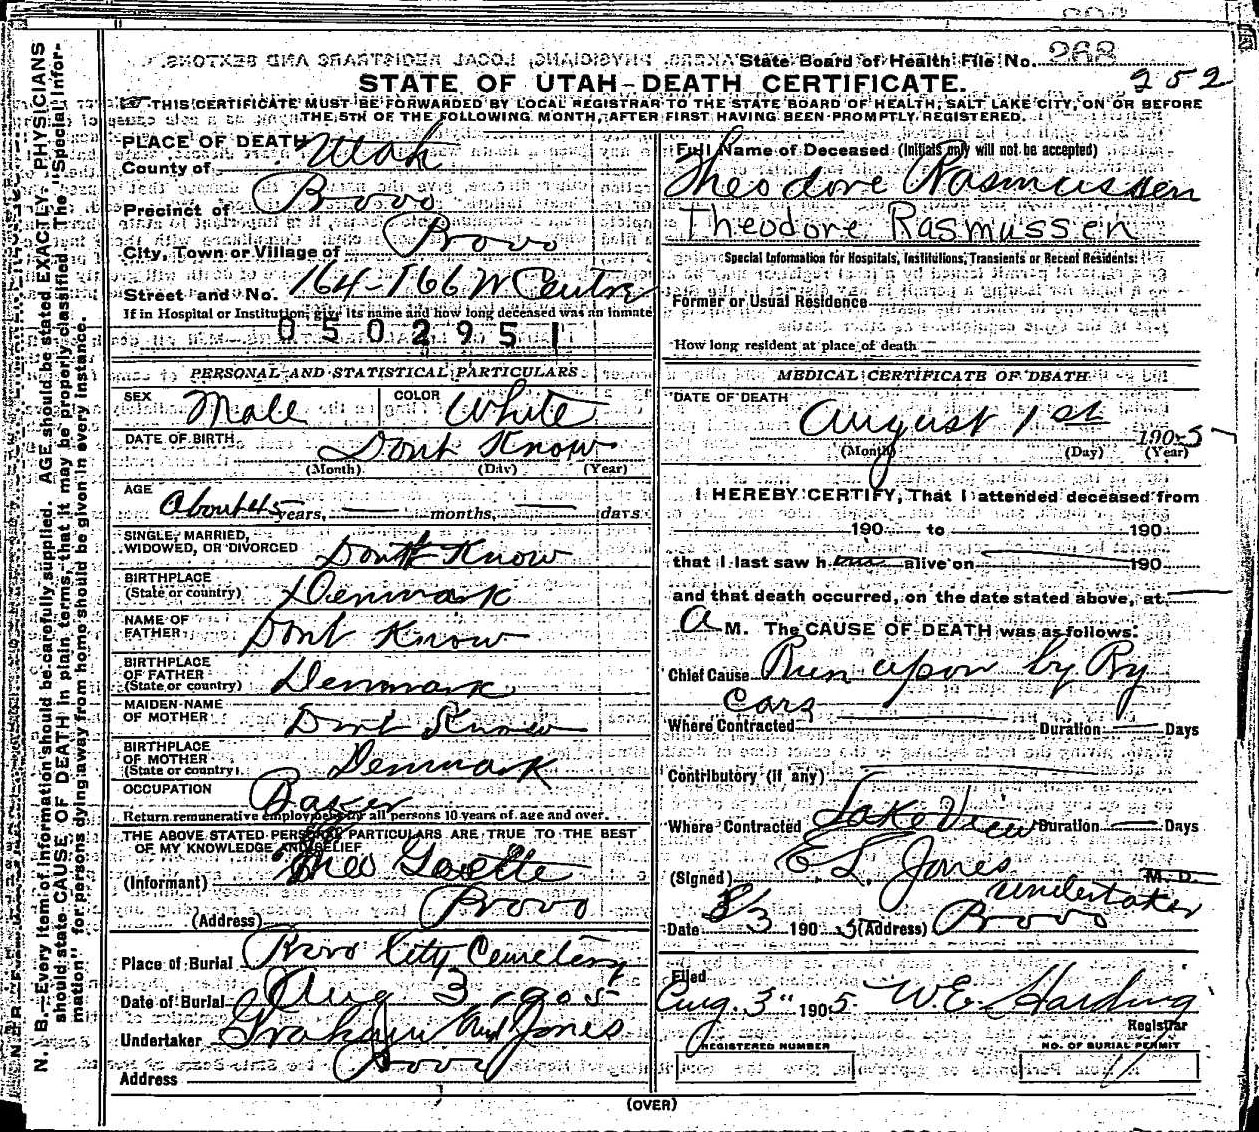 State Board of Health File No. 268
252
STATE OF UTAH—DEATH CERTIFICATE.
THIS CERTIFICATE MUST BE FORWARDED BY LOCAL REGISTRAR TO THE STATE BOARD OF HEALTH, SALT LAKE CITY, ON OR BEFORE
THE 5TH OF THE FOLLOWING MONTH, AFTER FIRST HAVING BEEN PROMPTLY REGISTERED.
N. B.—Every item of information should be carefully supplied. AGE should be stated EXACTLY. PHYSICIANS
should state CAUSE OF DEATH in plain terms, that it may be properly classified. The "Special Infor-
mation" for persons dying away from home should be given in every instance.
PLACE OF DEATH
County of Utah
Precinct of Provo
City, Town or Village of Provo
Street and No. 164-166 W Centre
If in Hospital or Institution, give its name and how long deceased was an inmate
0 5 0 2 9 5 1
PERSONAL AND STATISTICAL PARTICULARS
SEX Male COLOR White
DATE OF BIRTH Dont Know
(Month) (Day) (Year)
AGE
About 45 years, — months, — days
SINGLE, MARRIED,
WIDOWED, OR DIVORCED Dont Know
BIRTHPLACE
(State or country) Denmark
NAME OF
FATHER Dont Know
BIRTHPLACE
OF FATHER
(State or country) Denmark
MAIDEN NAME
OF MOTHER Dont Know
BIRTHPLACE
OF MOTHER
(State or country) Denmark
OCCUPATION Baker
Return remunerative employment for all persons 10 years of age and over.
THE ABOVE STATED PERSONAL PARTICULARS ARE TRUE TO THE BEST
OF MY KNOWLEDGE AND BELIEF
(Informant) Theo
(Address) Provo
Place of Burial Provo City Cemetery
Date of Burial Aug 3 1905
Undertaker and Jones
Address Provo
Full Name of Deceased (Initials only will not be accepted)
Theodore Rasmussen
Theodore Rasmussen
Special Information for Hospitals, Institutions, Transients or Recent Residents:
Former or Usual Residence
How long resident at place of death
MEDICAL CERTIFICATE OF DEATH
DATE OF DEATH
August 1st 1905
(Month) (Day) (Year)
I HEREBY CERTIFY, That I attended deceased from
190 to 190
that I last saw h alive on — 190
and that death occurred, on the date stated above, at —
A M. The CAUSE OF DEATH was as follows:
Chief Cause Run upon by Ry
Cars
Where Contracted — Duration — Days
Contributory (if any) —
Where Contracted Lake View Duration — Days
(Signed) E L Jones M. D.
undertaker
Date 8/3 1905 (Address) Provo
Filed
Aug. 3" 1905 W E. Harding
Registrar
REGISTERED NUMBER
NO. OF BURIAL PERMIT
11
(OVER)